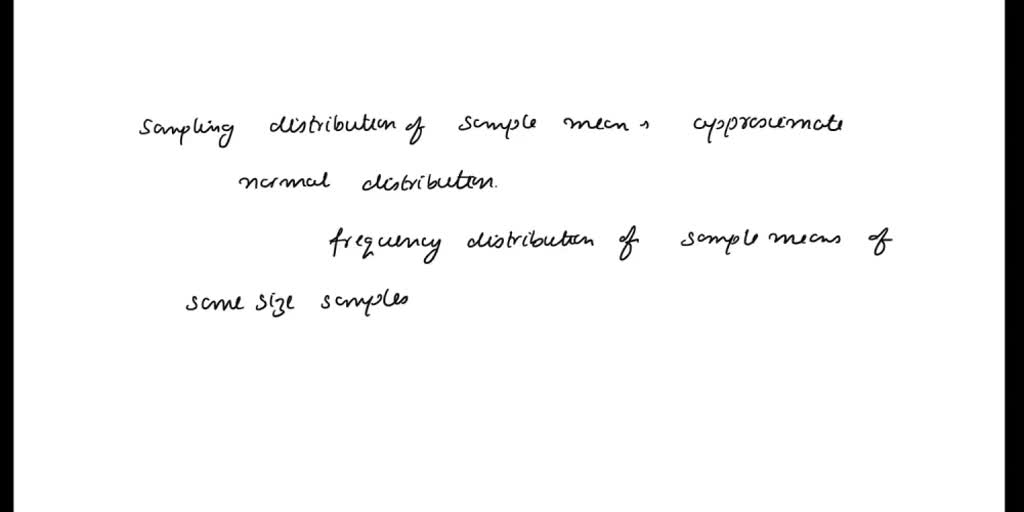 Sampling distribution of sample mean, approximate
normal distribution.
frequency distribution of sample means of
same size samples